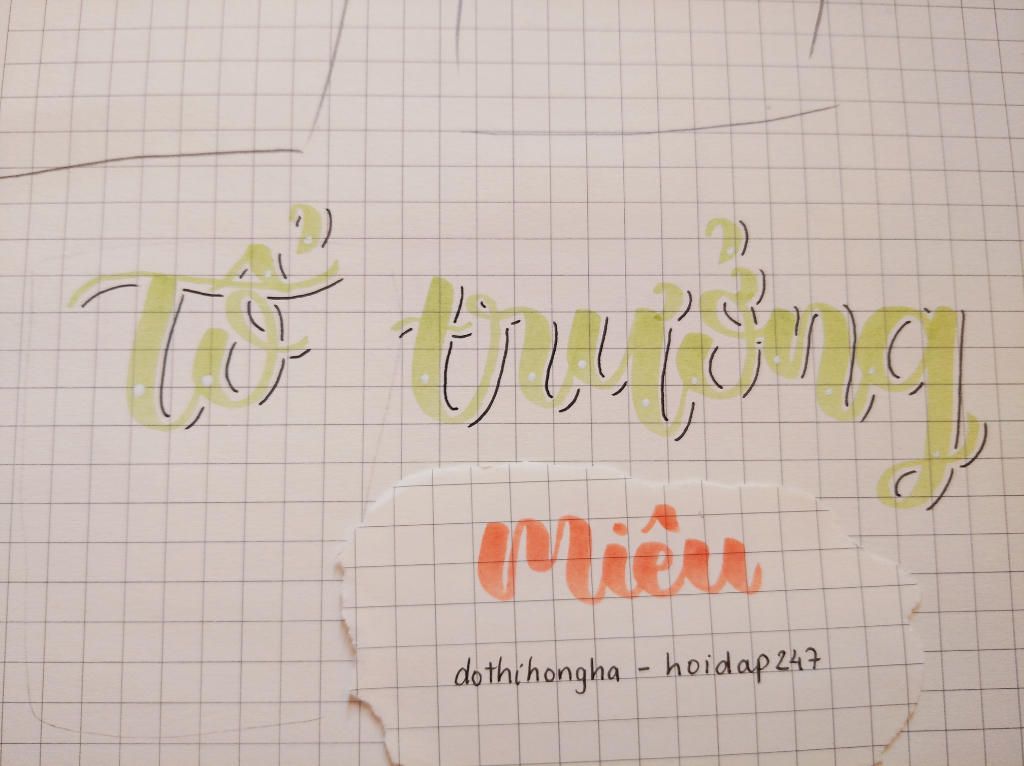 Tổ trưởng
Miêu
dothihongha - hoidap247